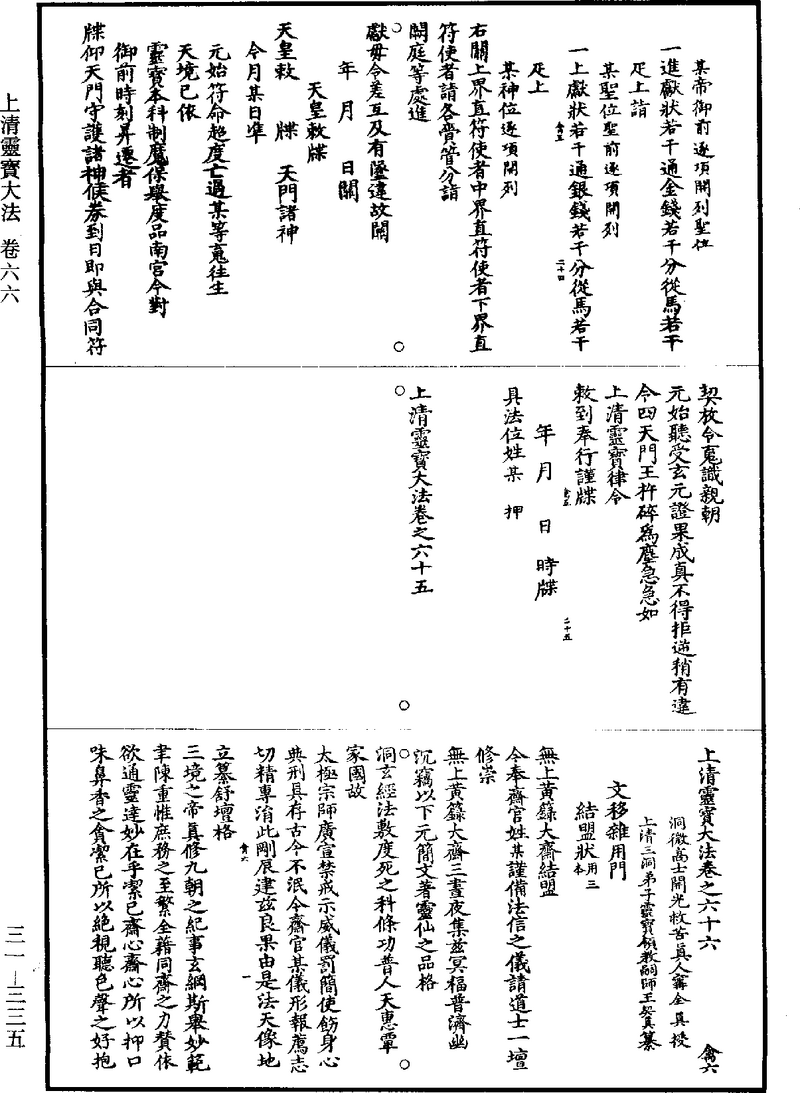 上清靈寶大法 卷六六
三一—三三五
某帝御前逐項開列聖位
一進獻狀若干通金錢若干分從馬若干
疋上請
某聖位聖前逐項開列
一上獻狀若干通銀錢若干分從馬若干
疋上
某神位逐項開列
右關上界直符使者中界直符使者下界直
符使者請各賫管分詣
闕庭等處進
獻毋令差互及有墮違故關
年 月 日關
天皇敕牒
天皇敕 牒 天門諸神
今月某日準
元始符命超度亡過某等䰟往生
天境已依
靈寶本科制魔保舉度品南宮今對
御前時刻昇遷者
牒仰天門守護諸神候券到日即與合同符
契放令䰟識親朝
元始聽受玄元證果成真不得拒逆稍有違
令四天門王杵碎為塵急急如
上清靈寶律令
敕到奉行謹牒
年 月 日 時牒
具法位姓某 押
上清靈寶大法卷之六十五
上清靈寶大法卷之六十六 禽六
洞微高士開光救苦真人甯全真授
上清三洞弟子靈寶領教嗣師王契真纂
文移雜用門
結盟狀用三本
無上黃籙大齋結盟
今奉齋官姓某謹備法信之儀請道士一壇
修崇
無上黃籙大齋三晝夜集茲冥福普濟幽
沉竊以下元簡文著靈仙之品格
洞玄經法敷度死之科條功普人天惠覃
家國故
太極宗師廣宣禁戒示威儀罰簡使飭身心
典刑具存古今不泯今齋官某儀形報薦志
切精專涓此剛辰建茲良果由是法天像地
立纂舒壇格
三境之帝真修九朝之紀事玄綱斯舉妙範
聿陳重惟庶務之至繁全藉同齋之力贊依
欲通靈達妙在乎潔已齋心齋心所以抑口
味鼻香之貪潔已所以絕視聽色聲之好抱